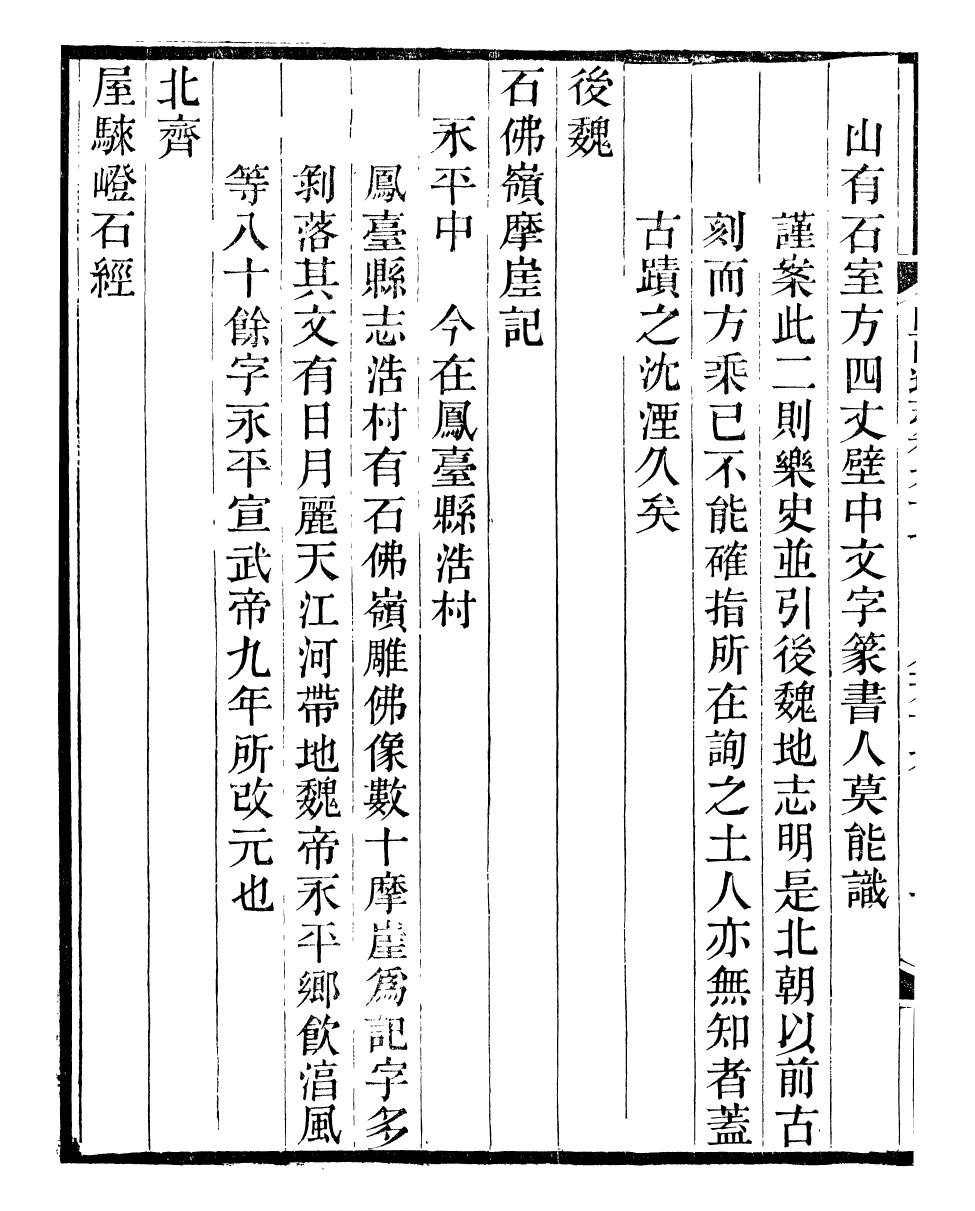 山有石室方四丈壁中文字篆書人莫能識
謹案此二則樂史並引後魏地志明是北朝以前古
刻而方乘已不能確指所在詢之土人亦無知者蓋
古蹟之沈湮久矣
後魏
石佛嶺摩崖記
永平中　今在鳳臺縣浩村
鳳臺縣志浩村有石佛嶺雕佛像數十摩崖爲記字多
剝落其文有日月麗天江河帶地魏帝永平鄉飲淯風
等八十餘字永平宣武帝九年所改元也
北齊
屋騋嶝石經